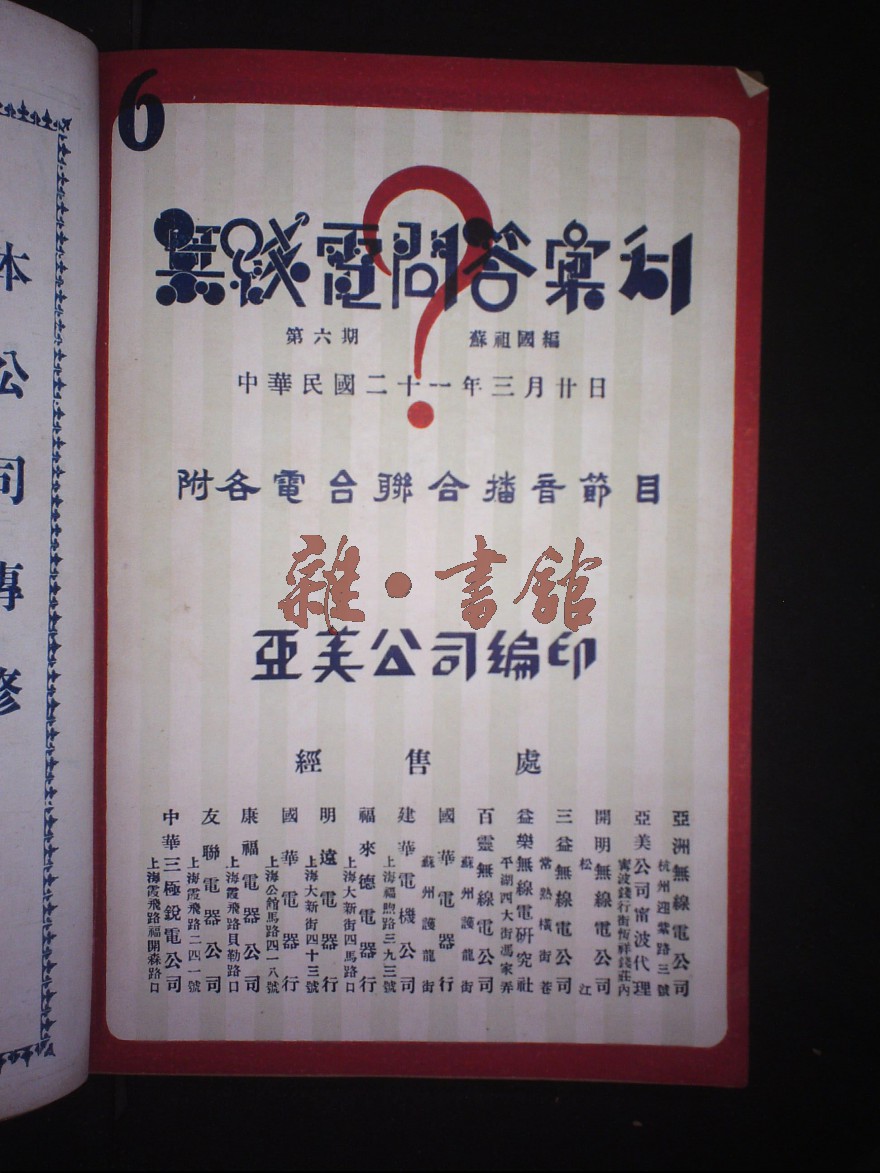 6
無綫電問答彙刊
第六期 蘇祖國編
中華民國二十一年三月廿日
附各電台聯合播音節目
雜·書館
亞美公司編印
經售處
亞洲無線電公司
杭州迎紫路三號
亞美公司甯波代理
甯波錢行街恆祥錢莊內
開明無線電公司
松江
三益無線電公司
常熟橫街巷
益樂無線電研究社
平湖四大街馮家弄
百靈無線電公司
蘇州護龍街
國華電器行
蘇州護龍街
建華電機公司
上海福煦路三九三號
福來德電器行
上海大新街四馬路口
明遠電器行
上海大新街四十三號
國華電器行
上海公館馬路四一八號
康福電器公司
上海霞飛路貝勒路口
友聯電器公司
上海霞飛路二四一號
中華三極銳電公司
上海霞飛路福開森路口
公司專修